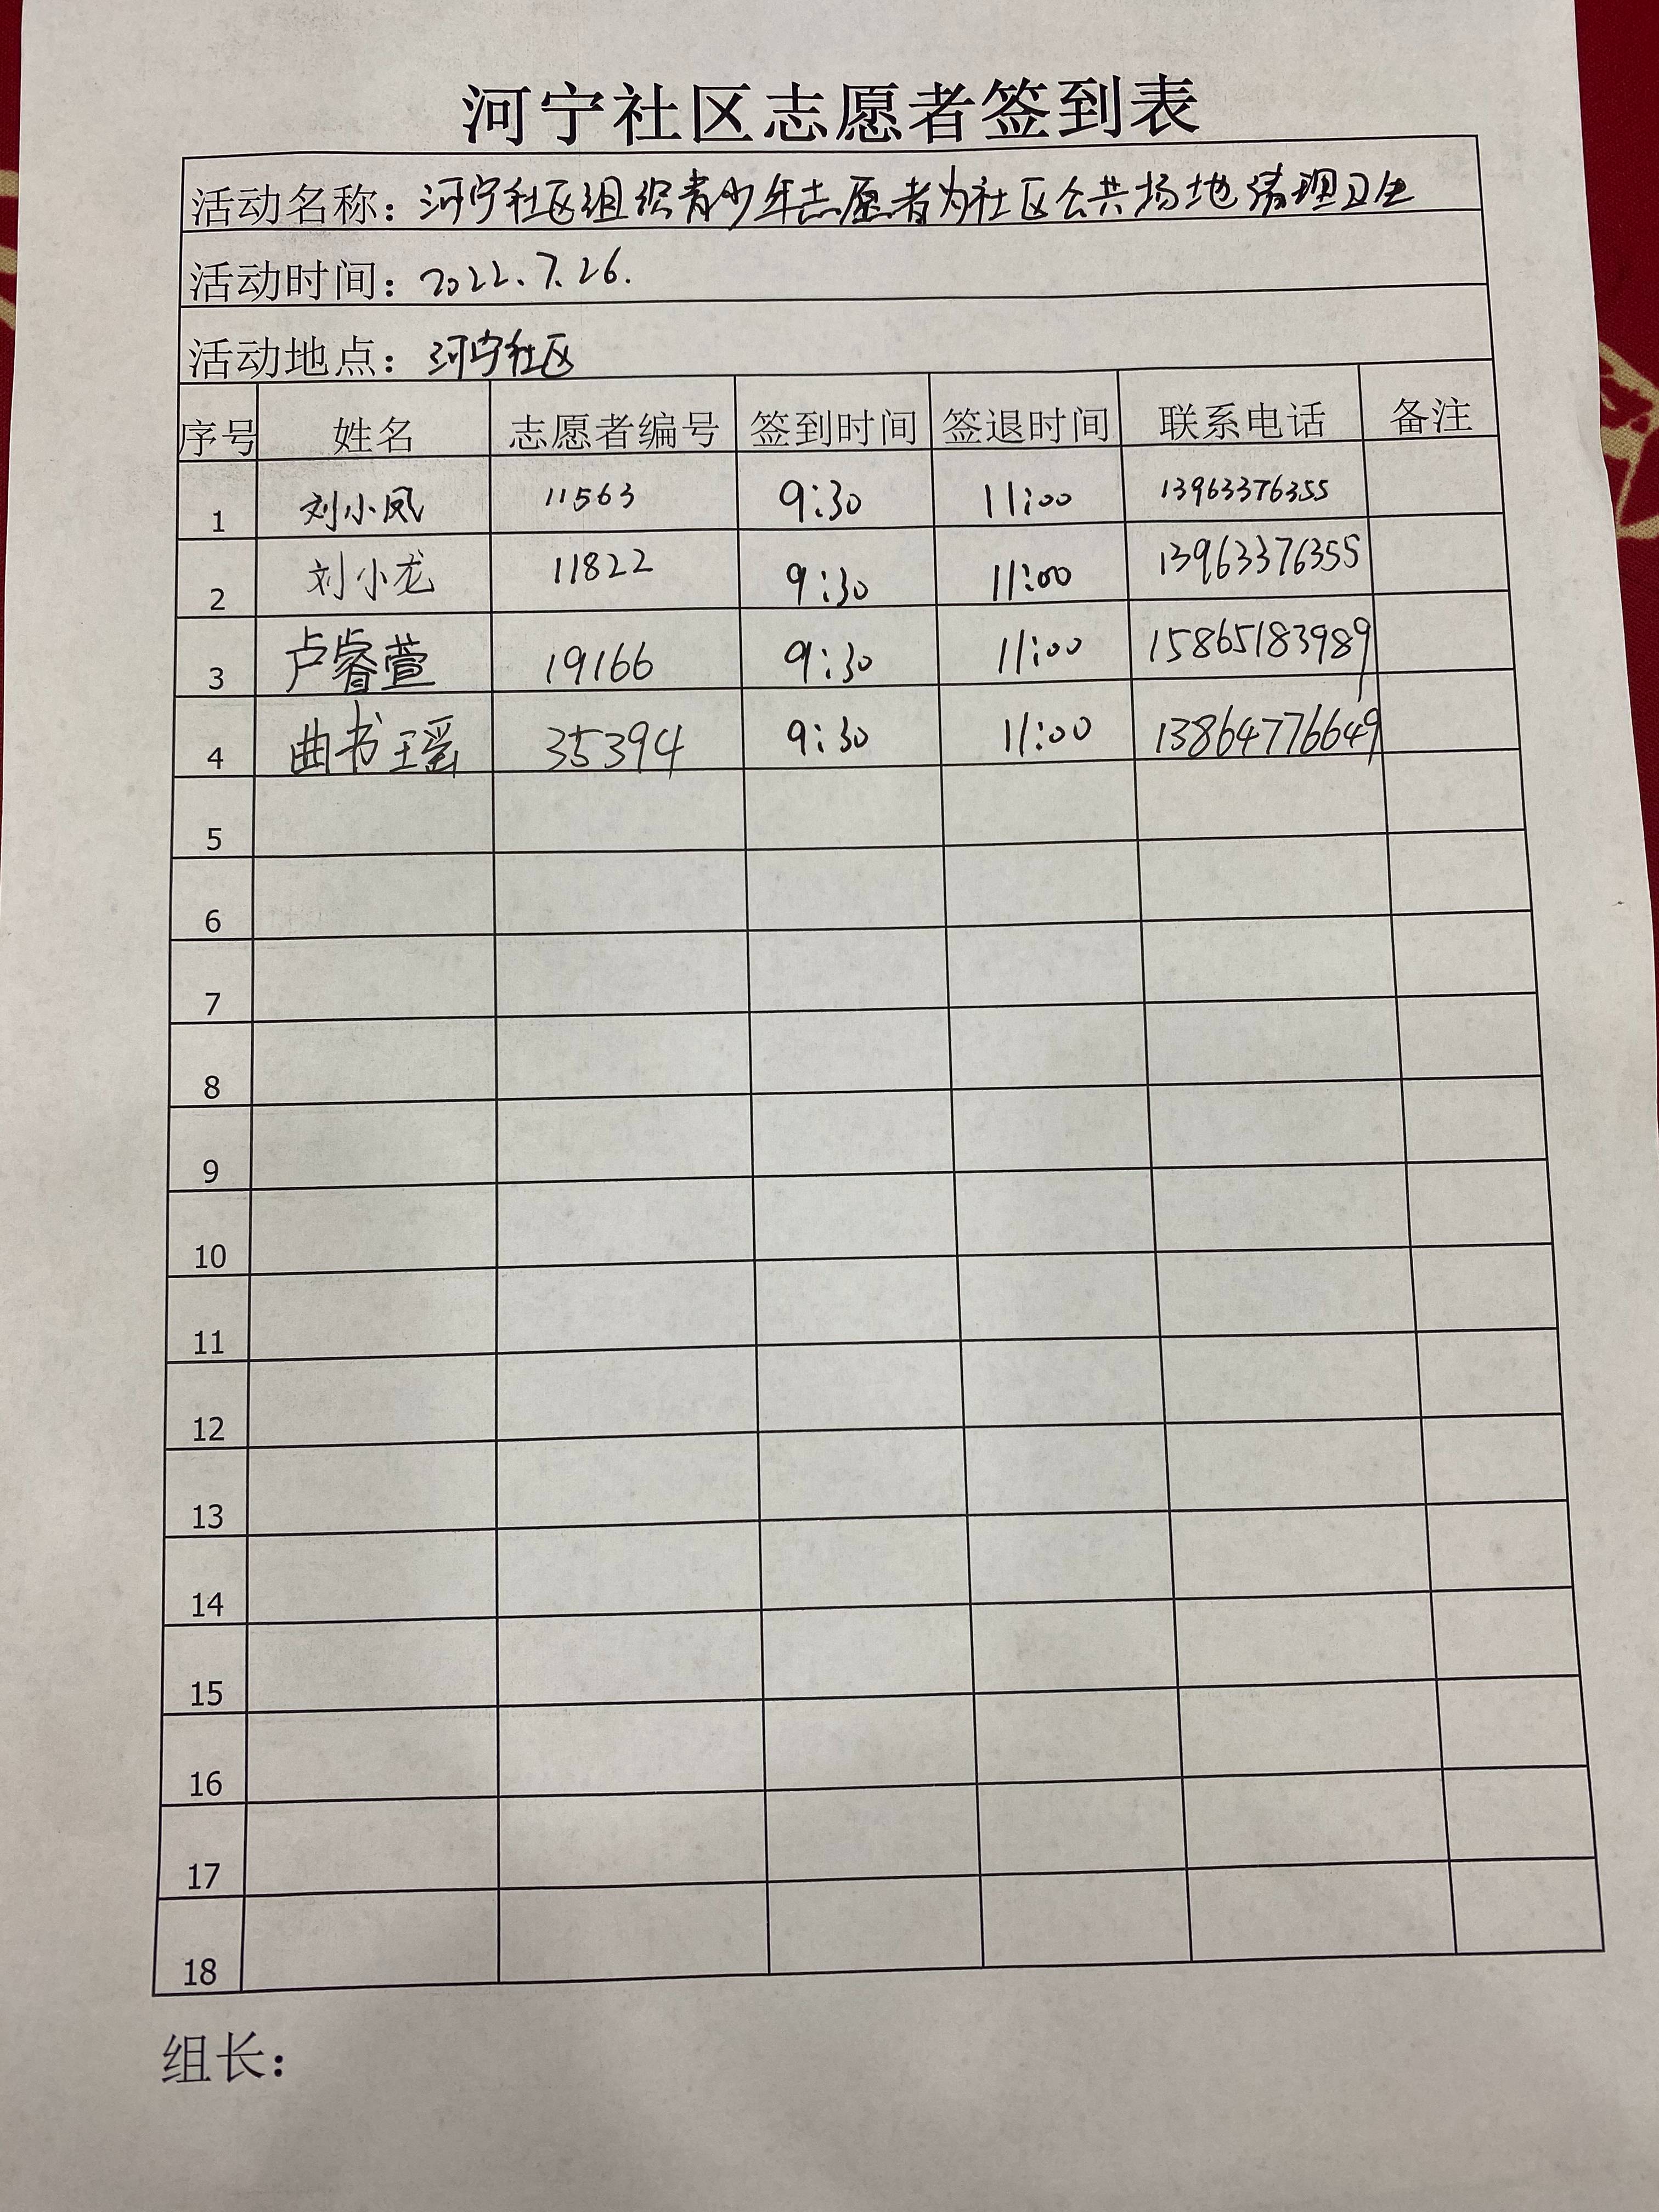 河宁社区志愿者签到表
活动名称：河宁社区组织青少年志愿者为社区公共场地清理卫生
活动时间：2022.7.26.
活动地点：河宁社区
序号 姓名 志愿者编号 签到时间 签退时间 联系电话 备注
1 刘小凤 11563 9:30 11:00 13963376355
2 刘小龙 11822 9:30 11:00 13963376355
3 卢睿萱 19166 9:30 11:00 15865183989
4 曲书瑶 35394 9:30 11:00 13864776649
5
6
7
8
9
10
11
12
13
14
15
16
17
18
组长：